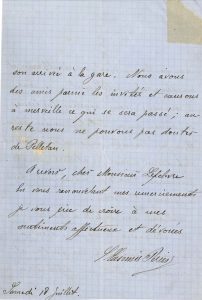 son arrivée à la gare. Nous avons
des amis parmi les invités et saurons
à merveille ce qui se sera passé ; au
reste nous ne pouvons pas douter
de Pelletan.
Au revoir, cher Monsieur Lefebvre
En vous renouvelant mes remerciements
je vous prie de croire à mes
sentiments affectueux et dévoués
Samedi 18 juillet.